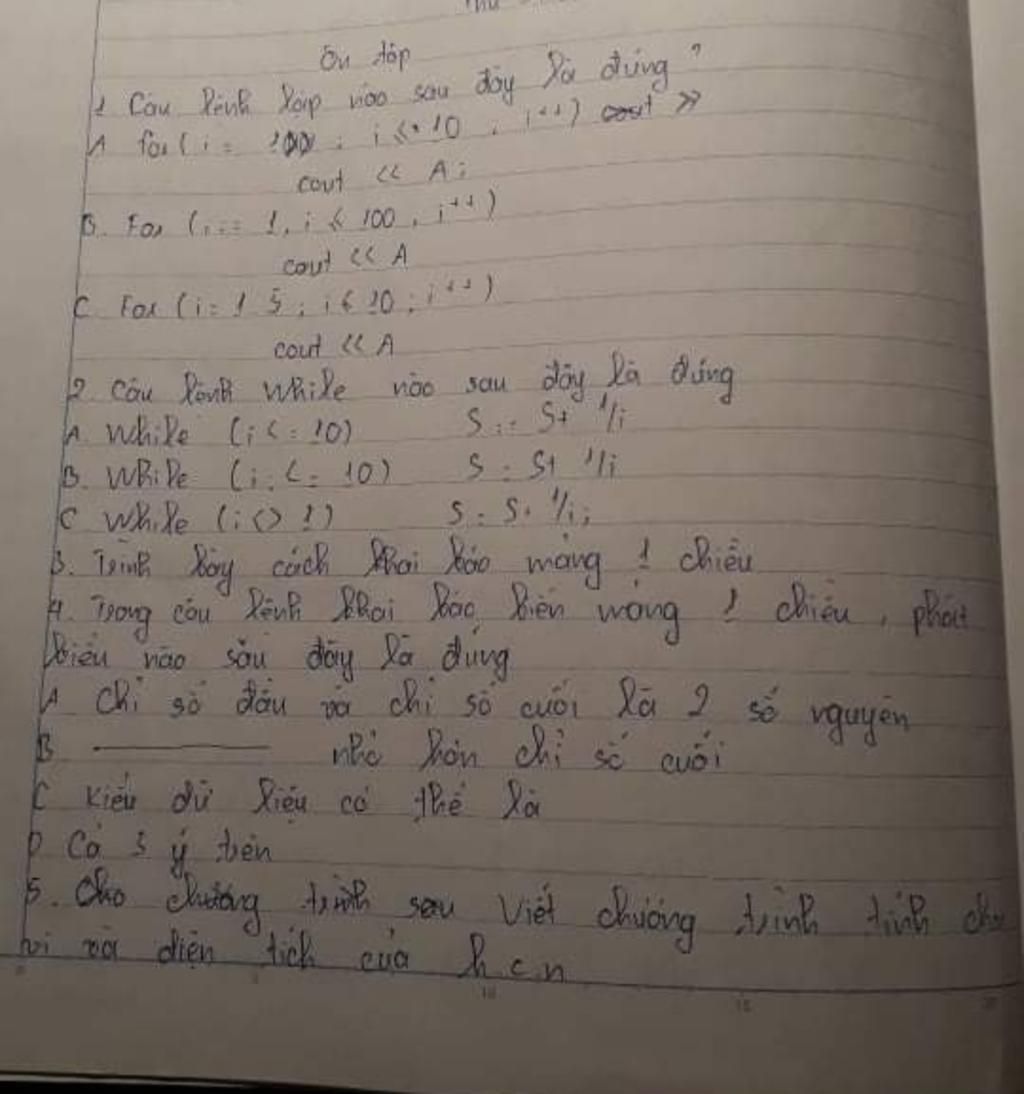 Ôn tập
1 Câu lệnh lặp nào sau đây là đúng ?
A for ( i = 100 ; i <= 10 ; i++)
cout << A ;
B. For (i := 1, i < 100 , i++)
cout << A
C For (i = 1 5 ; i < 10 ; i++)
cout << A
2 Câu lệnh While nào sau đây là đúng
A. While (i <= 10) S := S+ 1/i
B. While (i: <= 10) S = S+ 1/i
C While (i <> 1) S = S+ 1/i;
3. Trình bày cách khai báo mảng 1 chiều
4. Trong câu lệnh khai báo biến mảng 1 chiều , phát
biểu nào sau đây là đúng
A Chỉ số đầu và chỉ số cuối là 2 số nguyên
B ———— nhỏ hơn chỉ số cuối
C Kiểu dữ liệu có thể là
D Cả 3 ý trên
5. Cho chương trình sau Viết chương trình tính chu
vi và diện tích của h c n